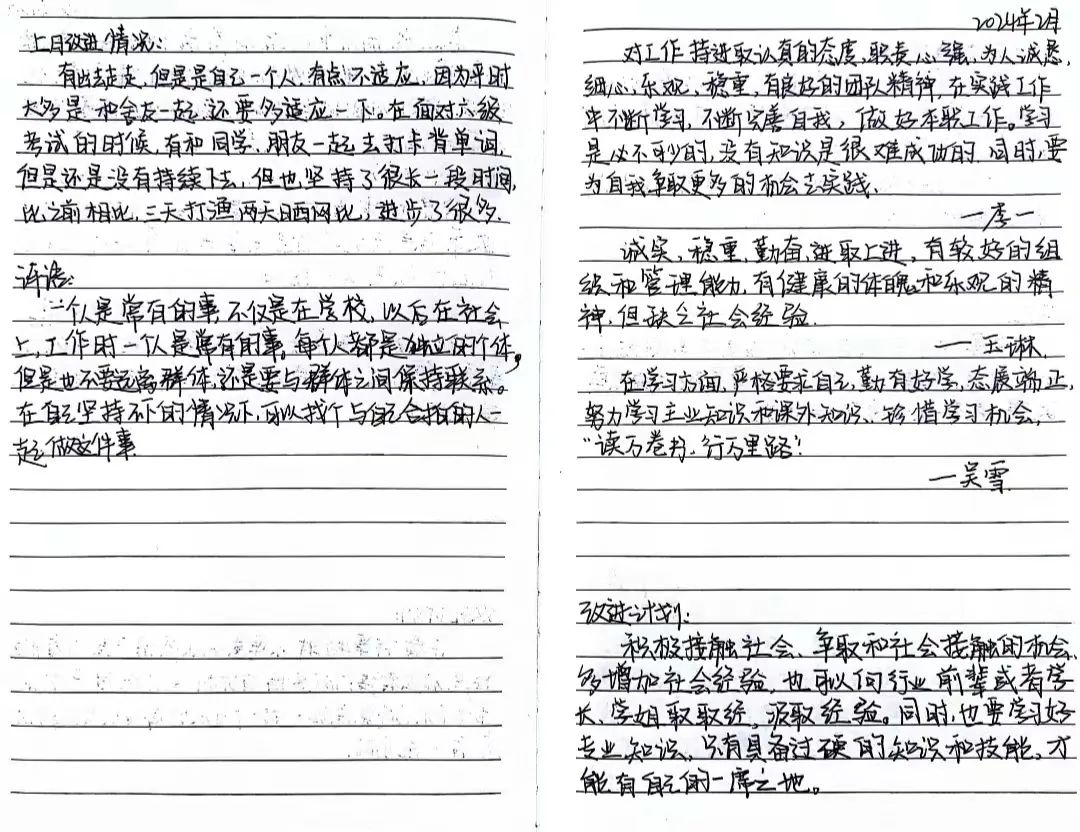 上月改进情况:
有出去走走,但是是自己一个人,有点不适应,因为平时
大多是和舍友一起,还要多适应一下。在面对六级
考试的时候,有和同学、朋友一起去打卡背单词,
但是还是没有持续下去,但也坚持了很长一段时间,
比之前相比,三天打渔两天晒网比,进步了很多.
评语:
一个人是常有的事,不仅是在学校,以后在社会
上,工作时一个人是常有的事。每个人都是独立的个体,
但是也不要远离群体,还是要与群体之间保持联系。
在自己坚持不下的情况下,可以找个与自己合拍的人一
起做这件事
2024年2月
对工作持进取认真的态度,职责心强,为人诚恳,
细心,乐观,稳重,有良好的团队精神,在实践工作
中不断学习,不断完善自我,做好本职工作。学习
是必不可少的,没有知识是很难成功的,同时,要
为自我争取更多的机会去实践.
—李一
诚实,稳重,勤奋,进取上进,有较好的组
织和管理能力,有健康的体魄和乐观的精
神,但缺乏社会经验.
—玉琳
在学习方面,严格要求自己,勤有好学,态度端正,
努力学习主业知识和课外知识、珍惜学习机会,
“读万卷书,行万里路”!
—吴雪
改进计划:
积极接触社会、争取和社会接触的机会,
多增加社会经验,也可以向行业前辈或者学
长、学姐取取经,汲取经验。同时,也要学习好
专业知识,只有具备过硬的知识和技能,才
能有自己的一席之地。